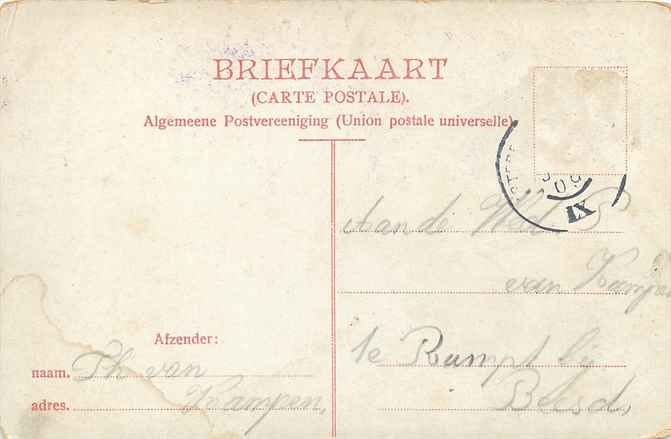 BRIEFKAART
(CARTE POSTALE).
Algemeene Postvereeniging (Union postale universelle)
XI
Aan de Wed. T
van Kampen
te Rumpt bij
Beesd,
Afzender:
naam. Th van
adres. Kampen,